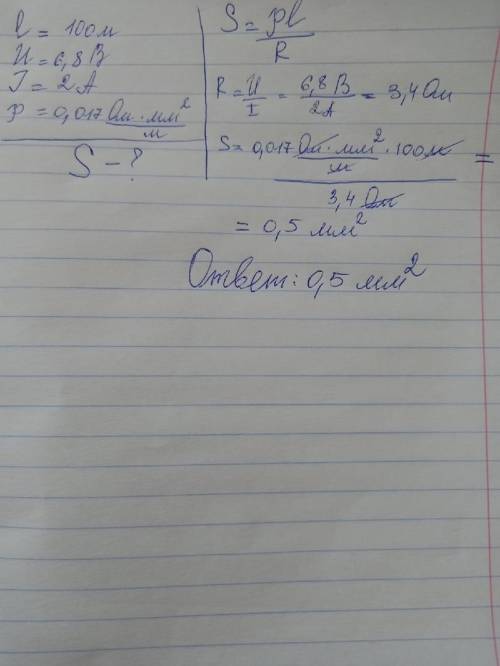 l = 100м
U = 6,8 В
I = 2 А
ρ = 0,017 Ом · мм² / м
S – ?
S = ρl / R
R = U / I = 6,8 В / 2А = 3,4 Ом
S = 0,017 Ом · мм² / м · 100м / 3,4 Ом =
= 0,5 мм²
Ответ: 0,5 мм²